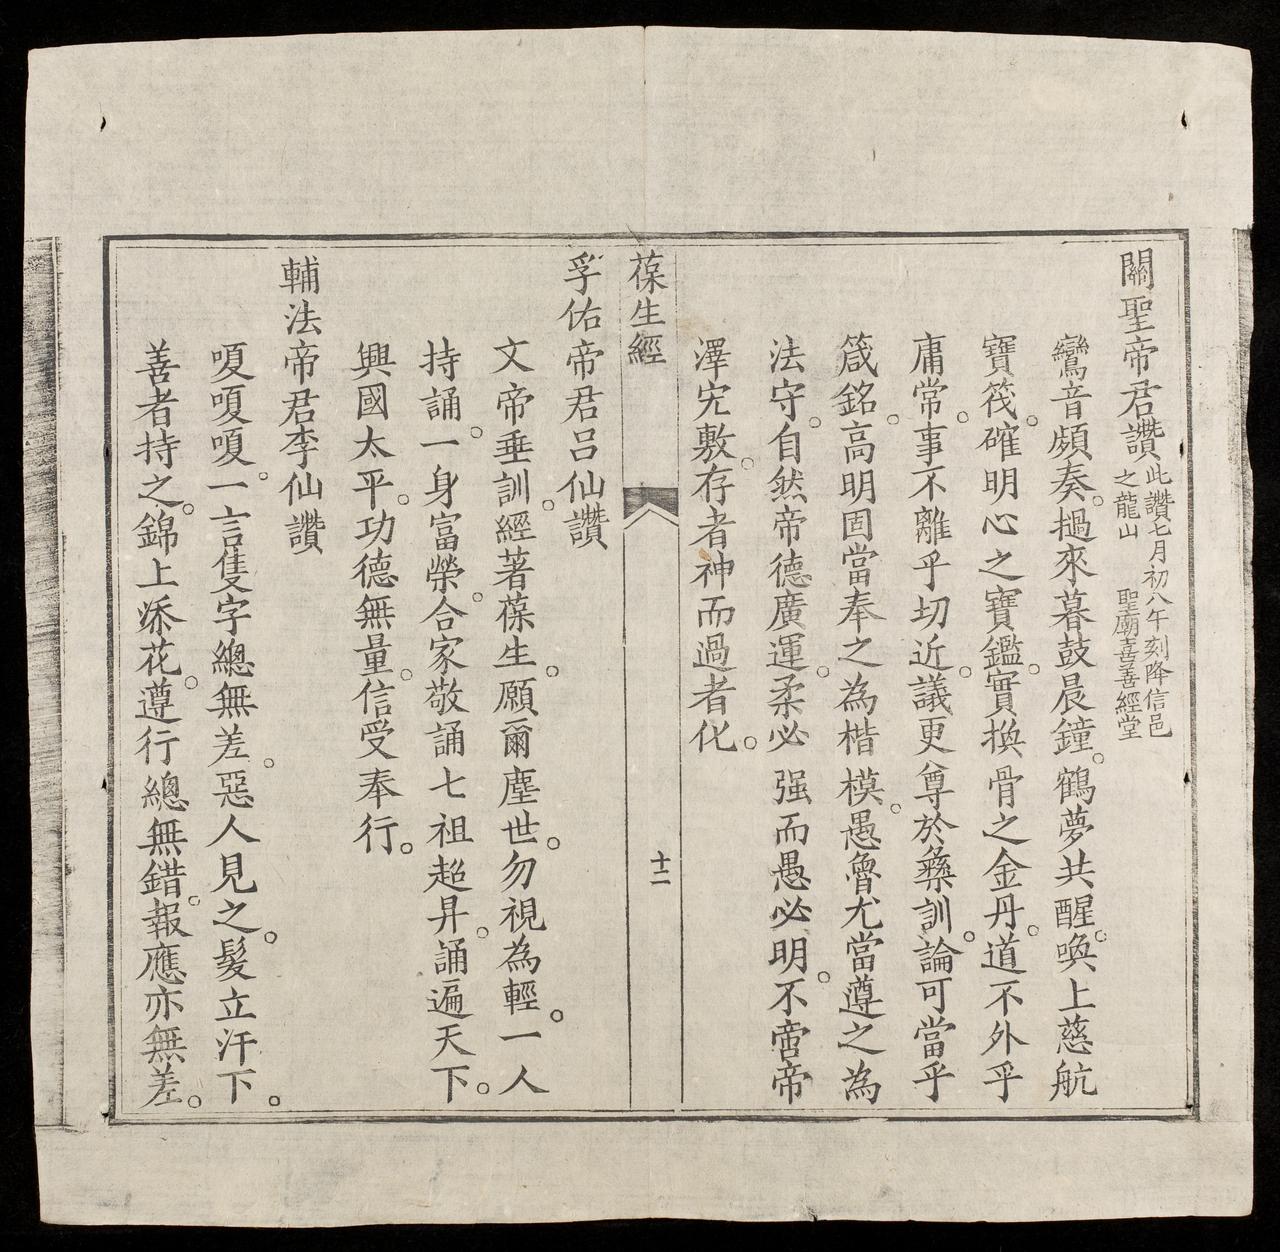 關聖帝君讚
此讚七月初八午刻降信邑
之龍山　聖廟喜善經堂
鸞音頻奏。撾來暮鼓晨鐘。鶴夢共醒。喚上慈航
寶筏。確明心之寶鑑。實換骨之金丹。道不外乎
庸常。事不離乎切近。議更尊於彝訓。論可當乎
箴銘。高明固當奉之為楷模。愚魯尤當遵之為
法守。自然帝德廣運。柔必强而愚必明。不啻帝
澤宄敷。存者神而過者化。
葆生經
十二
孚佑帝君吕仙讚
文帝垂訓。經著葆生。願爾塵世。勿視為輕。一人
持誦。一身富榮。合家敬誦七祖超昇。誦遍天下。
興國太平。功德無量。信受奉行。
輔法帝君李仙讚
嗄嗄嗄。一言隻字總無差。惡人見之。髮立汗下。
善者持之。錦上添花。遵行總無錯。報應亦無差。